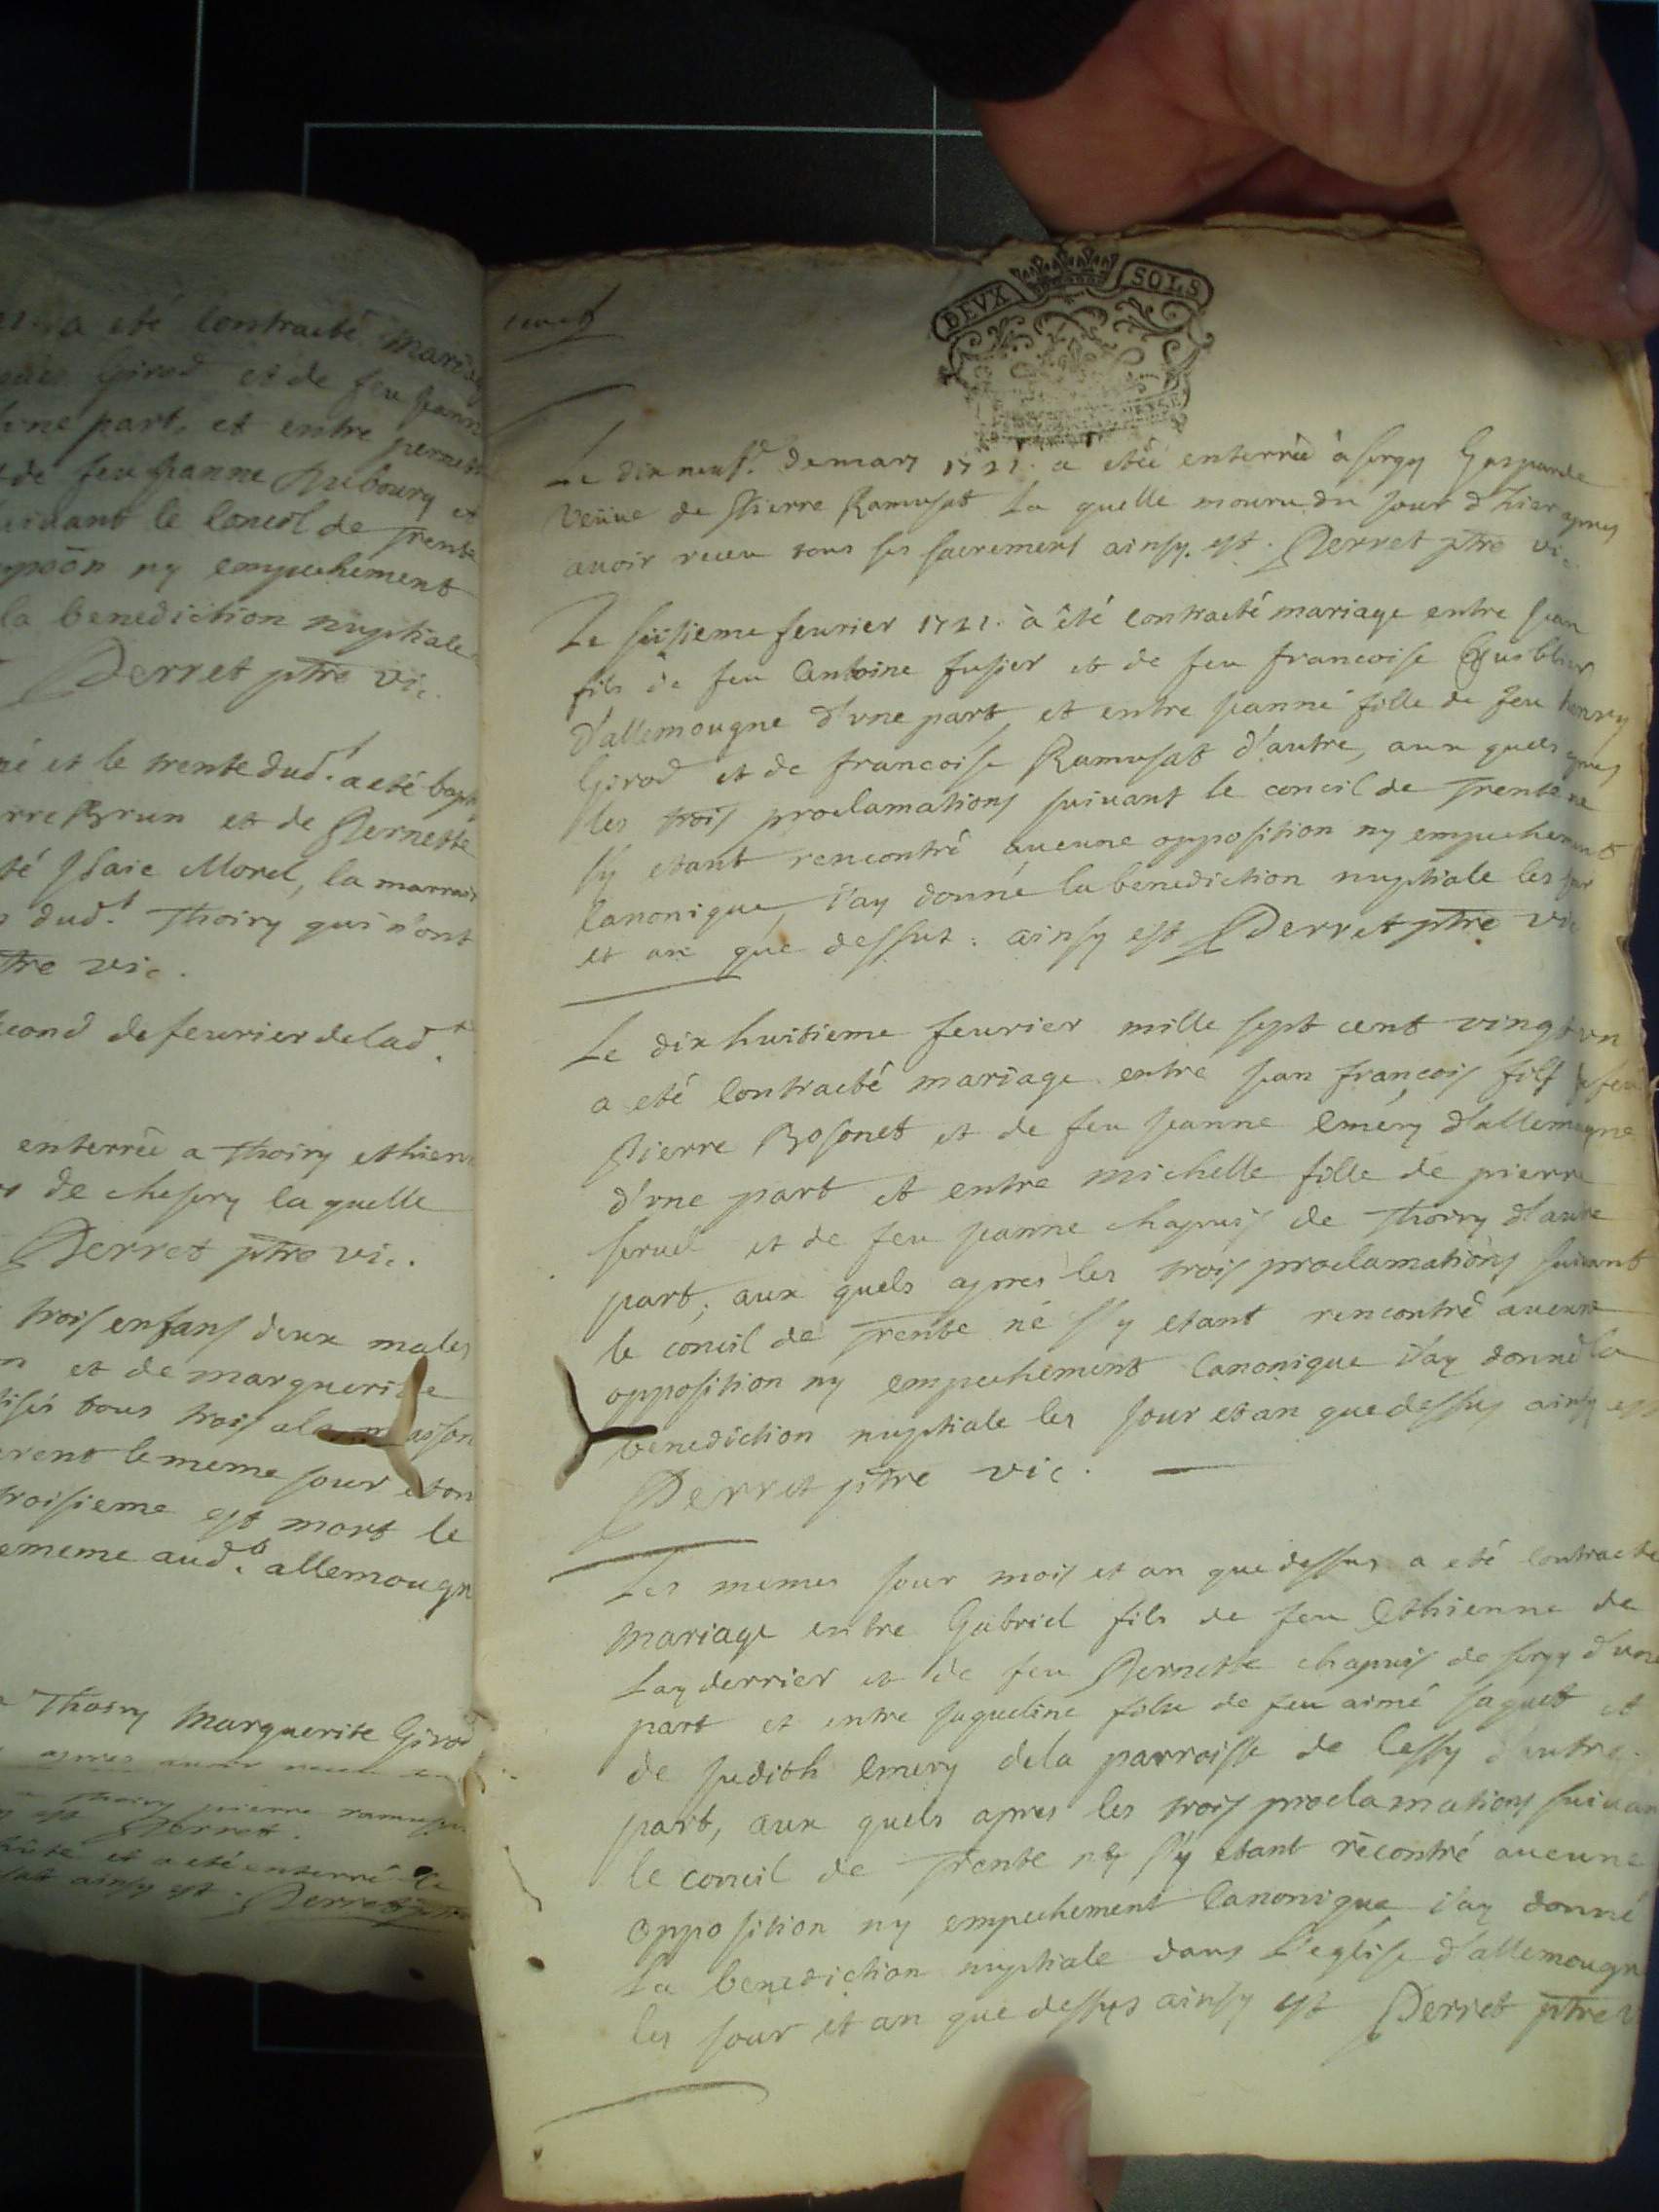 a eté contracté mari
Girod et de feu jeann
d'une part, et entre pernette
de feu jeanne Dubourg et
suivant le concil de trente
ny empechement
la benediction nuptiale
Perret ptre vic.
né et le trente dud.t a eté bapt
Brun et de Pernette
té Isaie Morel, la marrai
dud.t Thoiry qui n'ont
ptre vic.
second de feurier de lad.te
enterrée a Thoiry ethien
de chesery la quelle
Perret ptre vic.
trois enfans deux males
et de marguerite
tisés tous trois a la maison
rent le meme jour et on
troisieme est mort le
meme aud.t allemougn
Thoiry Marguerite Girod
apres auoir receu
Thoiry pierre ramusa
est Perret.
et a eté enterré le
ainsy est. Perret ptre
DEVX SOLS
Le dix neuf.e de mars 1721. a etéé enterrée à sergy Gasparde
veüue de Pierre Ramusat La quelle mouru du jour d'hier apres
auoir receu tous ses sacrements ainsy est. Perret ptre vic.
Le seisieme feurier 1721. à été contracté mariage entre jean
fils de feu Antoine fusier et de feu francoise
d'allemougne d'vne part, et entre jeanne fille de feu henry
Girod et de francoise Ramusat d'autre, aux quels apres
les trois proclamations suiuant le concil de Trente ne
s'y etant rencontré aucune opposition ny empechement
canonique, j'ay donné la benediction nuptiale les jour
et an que dessus: ainsy est Perret ptre vic
Le dix huitieme feurier mille sept cent vingt vn
a eté contracté mariage entre jean francois fils de feu
Pierre Bosonet et de feu jeanne Emery d'allemougne
d'vne part et entre michelle fille de pierre
et de feu jeanne chapuis de Thoiry d'autre
part, aux quels apres les trois proclamations suiuant
le concil de Trente ne s'y etant rencontré aucune
opposition ny empechement canonique j'ay donné la
benediction nuptiale les jour et an que dessus ainsy est
Perret ptre vic.
Les memes jour mois et an que dessus a eté contracté
mariage entre Gabriel fils de feu Ethienne de
Lay derrier et de feu Pernette chapuis de sergy d'vne
part et entre jaqueline fille de feu aimé jaquet et
de judith Emery de la parroisse de Cessy d'autre
part, aux quels apres les trois proclamations suiuan
le concil de Trente ny s'y etant récontré aucune
opposition ny empechement canonique j'ay donné
La benediction nuptiale dans L'eglise d'allemougn
les jour et an que dessus ainsy est Perret ptre v